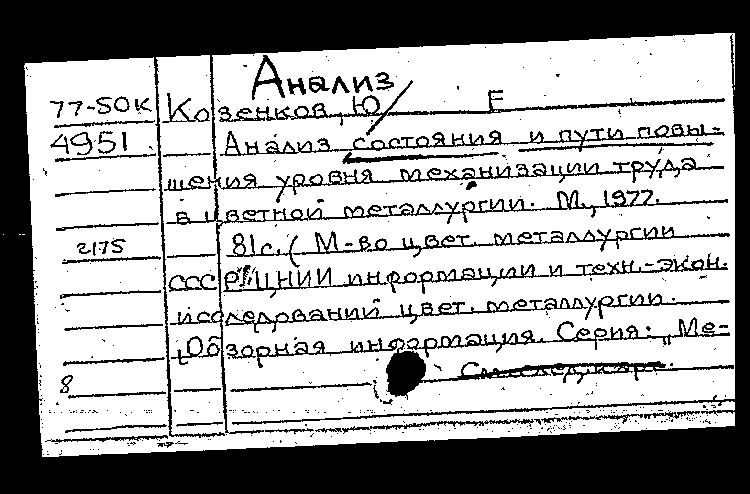 Анализ
77-50К Козенков, Ю Е
4951 Анализ состояния и пути повы-
шения уровня механизации труда
в цветной металлургии. М., 1977.
2175 81с. ( М-во цвет. металлургии
СССР. ЦНИИ информации и техн.-экон.
исследований цвет. металлургии.
Обзорная информация. Серия: „Ме-
8 См. след. карт.